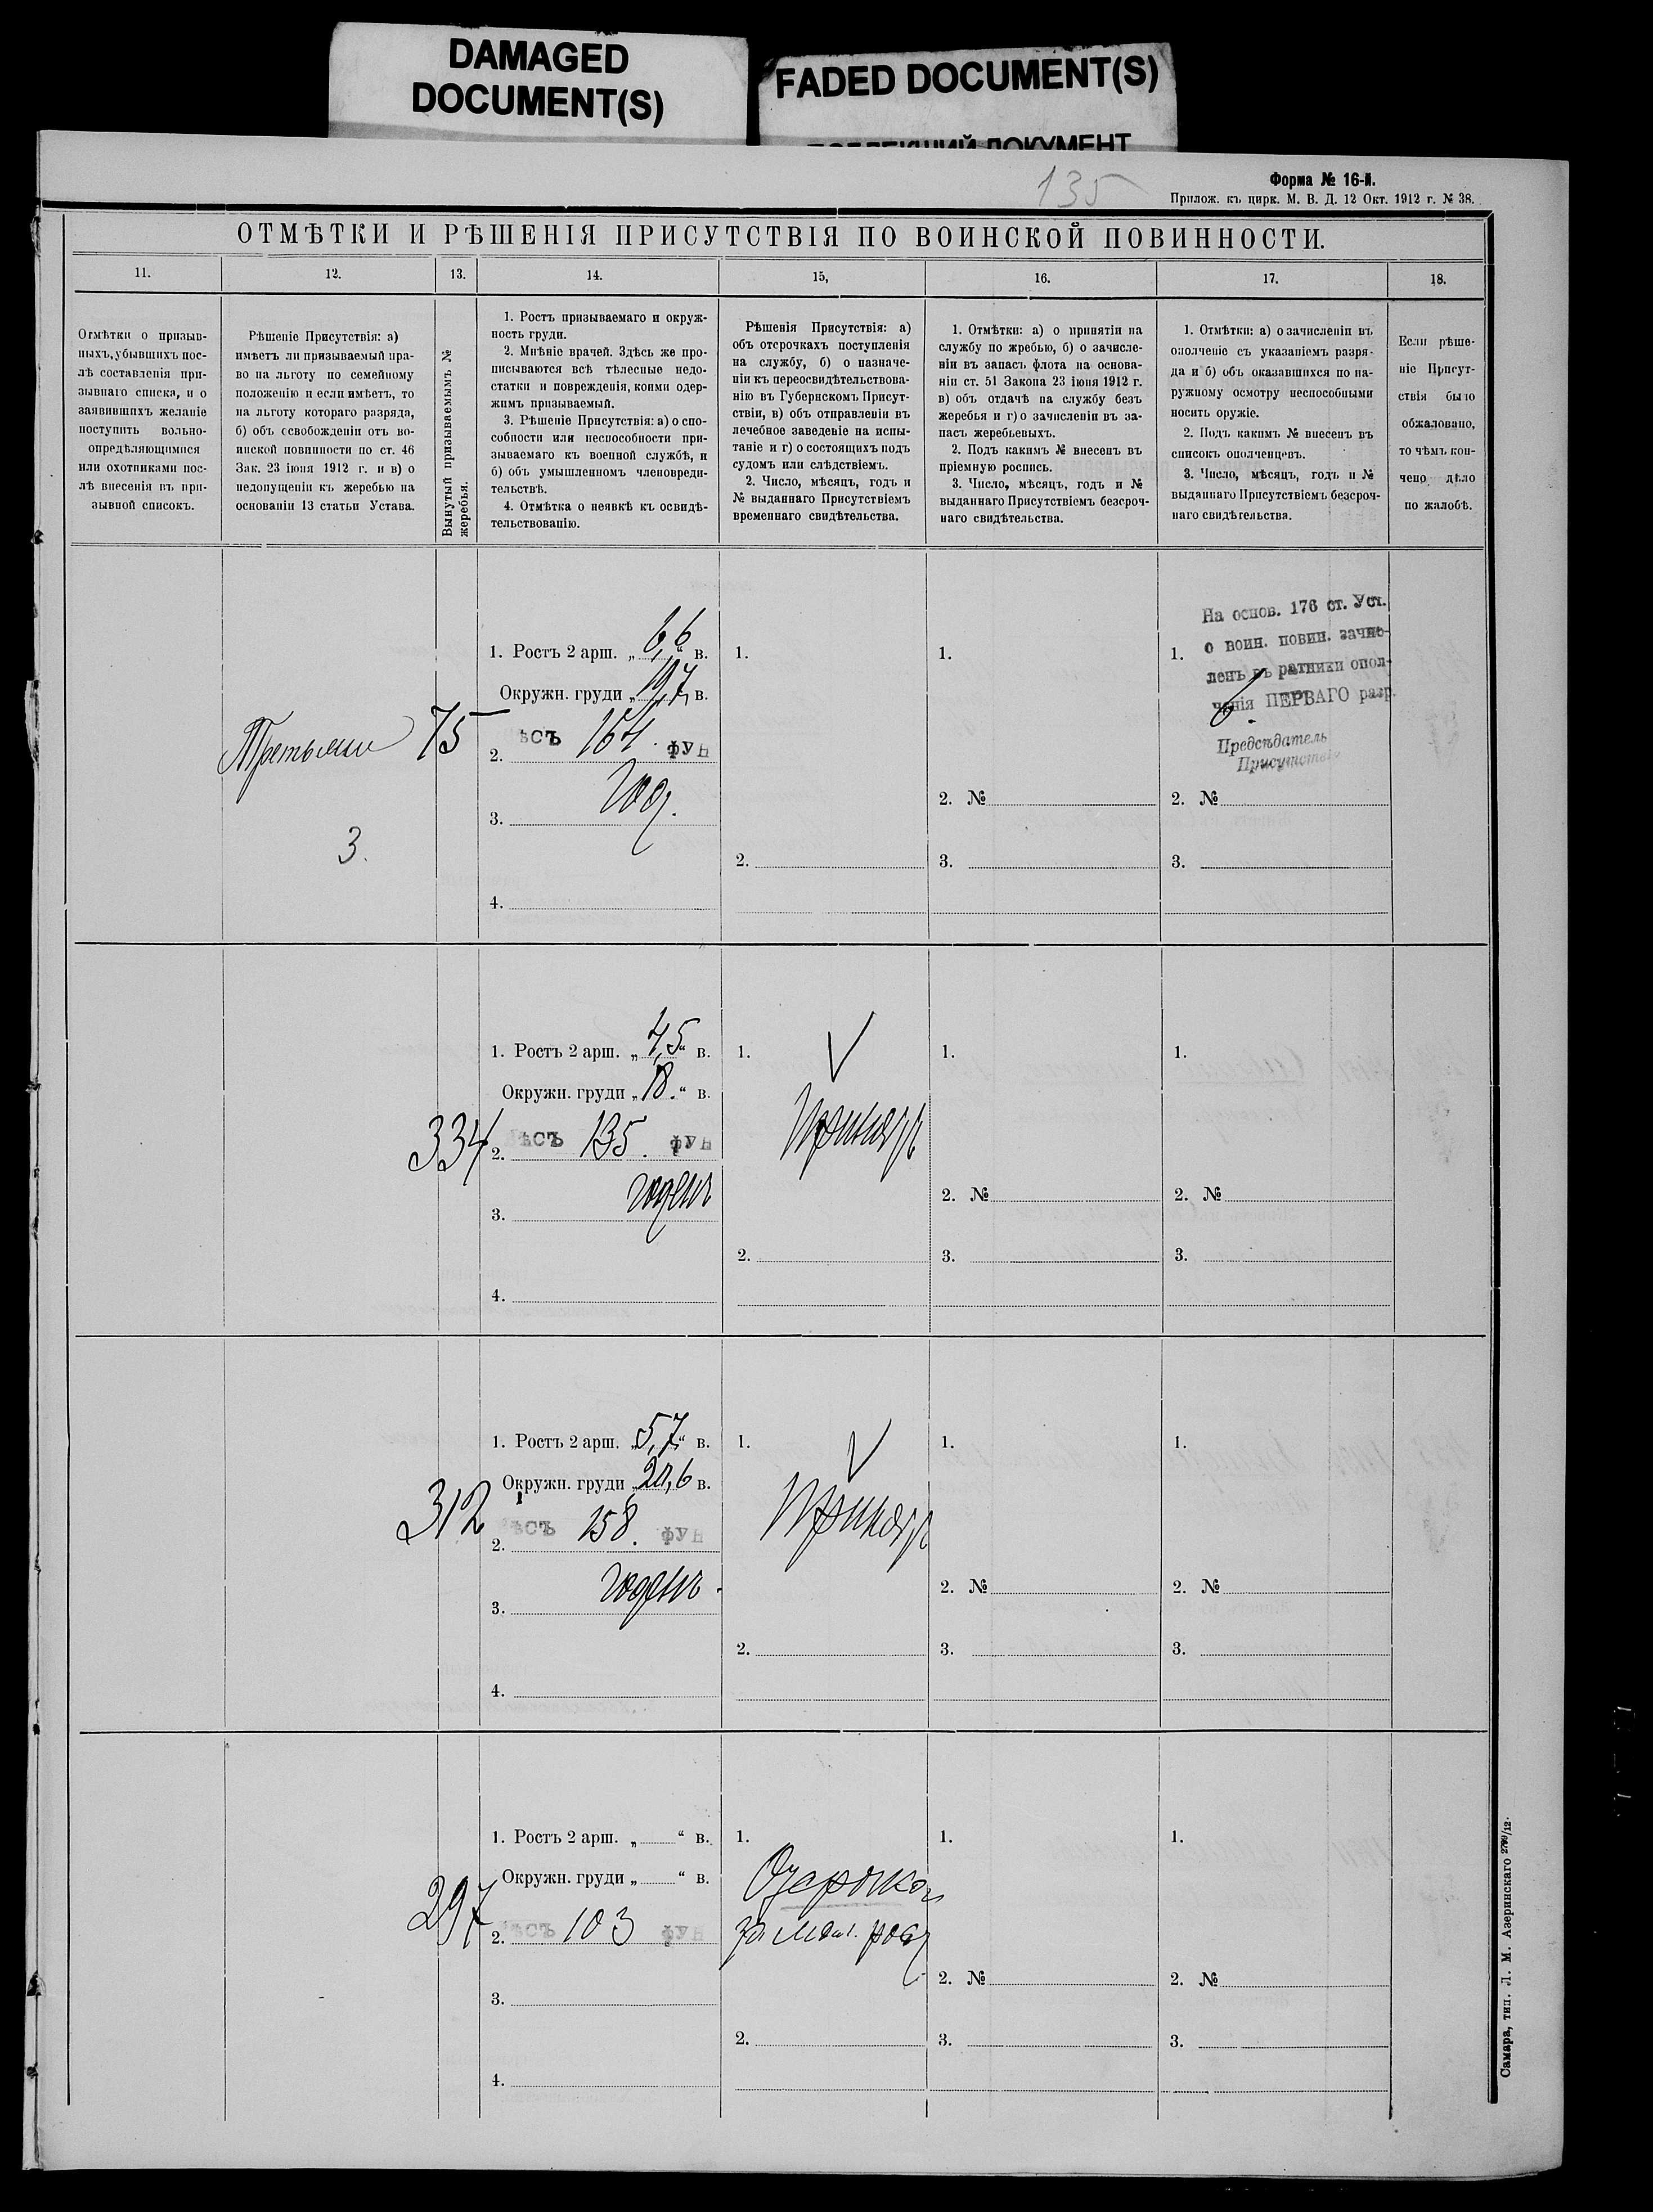 DAMAGED
DOCUMENT(S)
FADED DOCUMENT(S)
ДОКУМЕНТ
135
Форма № 16-й.
Прилож. къ цирк. М. В. Д. 12 Окт. 1912 г. № 38.
ОТМѢТКИ И РѢШЕНІЯ ПРИСУТСТВІЯ ПО ВОИНСКОЙ ПОВИННОСТИ.
11.
12.
13.
14.
15,
16.
17.
18.
Отмѣтки о призыв-
ныхъ, убывшихъ пос-
лѣ составленія при-
зывнаго списка, и о
заявившихъ желаніе
поступить вольно-
опредѣляющимися
или охотниками пос-
лѣ внесенія въ при-
зывной списокъ.
Рѣшеніе Присутствія: а)
имѣетъ ли призываемый пра-
во на льготу по семейному
положенію и если имѣетъ, то
на льготу котораго разряда,
б) объ освобожденіи отъ во-
инской повинности по ст. 46
Зак. 23 іюня 1912 г. и в) о
недопущеніи къ жеребью на
основаніи 13 статьи Устава.
Вынутый призываемымъ №
жеребья.
1. Ростъ призываемаго и окруж-
ность груди.
2. Мнѣніе врачей. Здѣсь же про-
писываются всѣ тѣлесные недо-
статки и поврежденія, коими одер-
жимъ призываемый.
3. Рѣшеніе Присутствія: а) о спо-
собности или неспособности при-
зываемаго къ военной службѣ, и
б) объ умышленномъ членовреди-
тельствѣ.
4. Отмѣтка о неявкѣ къ освидѣ-
тельствованію.
Рѣшенія Присутствія: а)
объ отсрочкахъ поступленія
на службу, б) о назначе-
ніи къ переосвидѣтельствова-
нію въ Губернскомъ Присут-
ствіи, в) объ отправленіи въ
лечебное заведеніе на испы-
таніе и г) о состоящихъ подъ
судомъ или слѣдствіемъ.
2. Число, мѣсяцъ, годъ и
№ выданнаго Присутствіемъ
временнаго свидѣтельства.
1. Отмѣтки: а) о принятіи на
службу по жребью, б) о зачисле-
ніи въ запасъ флота на основа-
ніи ст. 51 Закона 23 іюня 1912 г.
в) объ отдачѣ на службу безъ
жеребья и г) о зачисленіи въ за-
пасъ жеребьевыхъ.
2. Подъ какимъ № внесенъ въ
пріемную роспись.
3. Число, мѣсяцъ, годъ и №
выданнаго Присутствіемъ безсроч-
наго свидѣтельства.
1. Отмѣтки: а) о зачисленіи въ
ополченіе съ указаніемъ разря-
да и б) объ оказавшихся по на-
ружному осмотру неспособными
носить оружіе.
2. Подъ какимъ № внесенъ въ
списокъ ополченцевъ.
3. Число, мѣсяцъ, годъ и №
выданнаго Присутствіемъ безсроч-
наго свидѣтельства.
Если рѣше-
ніе Присут-
ствія было
обжаловано,
то чѣмъ кон-
чено дѣло
по жалобѣ.
3.
75
1. Ростъ 2 арш. „6,6“ в.
Окружн. груди „19,7„ в.
2. ѣсъ 164 фун
3. год.
4.
1.
2.
1.
2. №
3.
1. На основ. 176 ст. Уст.
о воин. повин. зачис-
ленъ въ ратники опол-
ченія ПЕРВАГО разр.
Предсѣдатель
Присутствія
2. №
3.
334
1. Ростъ 2 арш. „4,5“ в.
Окружн. груди „18.“ в.
2. ѣсъ 135. фун
3. годенъ
4.
1. Принятъ
2.
1.
2. №
3.
1.
2. №
3.
312
1. Ростъ 2 арш. „5,7“ в.
Окружн. груди „20,6 в.
2. ѣсъ 158. фун
3. годенъ
4.
1. Принятъ
2.
1.
2. №
3.
1.
2. №
3.
297
1. Ростъ 2 арш. „ “ в.
Окружн. груди „ “ в.
2. ѣсъ 103 фун
3.
4.
1. Отсрочка
за мал. рост
2.
1.
2. №
3.
1.
2. №
3.
Самара, тип. Л. М. Азеринскаго 2799/12.